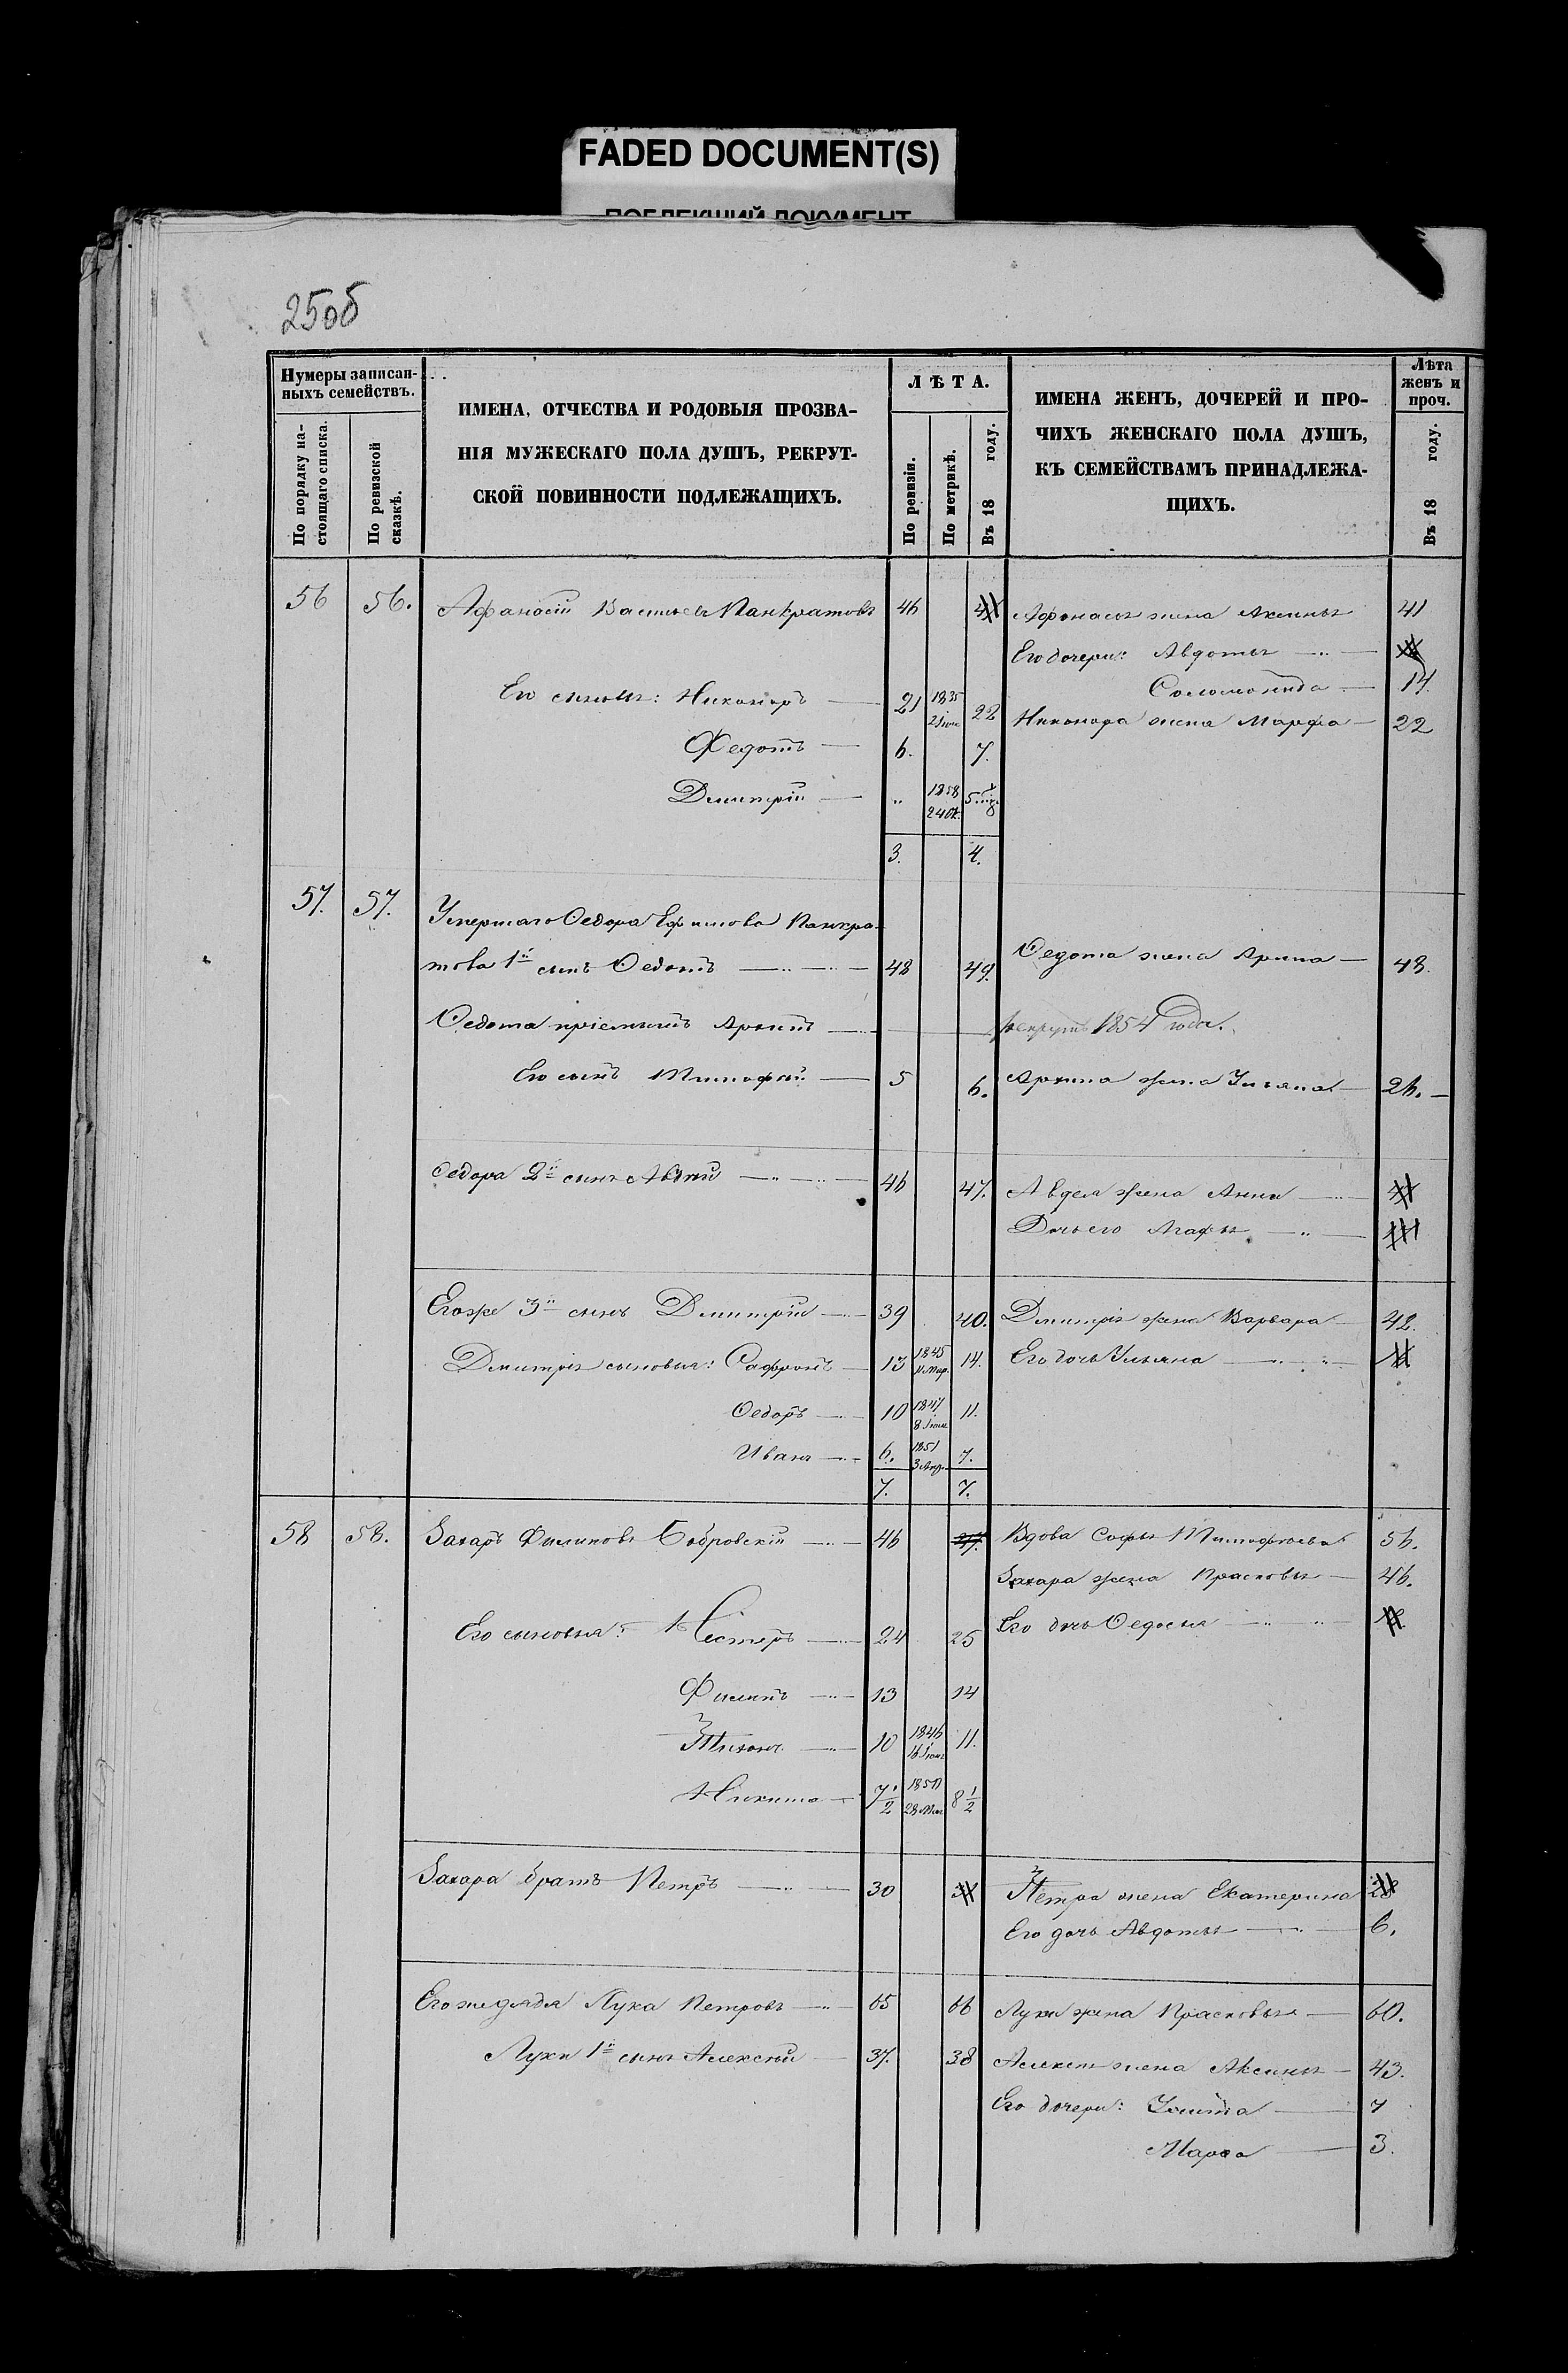 FADED DOCUMENT(S)
ПОБЛЕКШИЙ ДОКУМЕНТ
250б
Нумеры записан-
ныхъ семействъ.
По порядку на-
стоящаго списка.
По ревизской
сказкѣ.
ИМЕНА, ОТЧЕСТВА И РОДОВЫЯ ПРОЗВА-
НІЯ МУЖЕСКАГО ПОЛА ДУШЪ, РЕКРУТ-
СКОЙ ПОВИННОСТИ ПОДЛЕЖАЩИХЪ.
ЛѢТА.
По ревизіи.
По метрикѣ.
Въ 18 году.
ИМЕНА ЖЕНЪ, ДОЧЕРЕЙ И ПРО-
ЧИХЪ ЖЕНСКАГО ПОЛА ДУШЪ,
КЪ СЕМЕЙСТВАМЪ ПРИНАДЛЕЖА-
ЩИХЪ.
Лѣта
женъ и
проч.
Въ 18 году.
56 56. Афанасій Васильевъ Панкратовъ 46 Афонасья жена Аксинья 41
Его дочери: Авдотья
Соломонида 14.
Его сыновья: Никаноръ 21 1835 22 Никонора жена Марфа 22
Федотъ 6. 7.
Дмитрій " 1858 24 Ок.
3. 4.
57. 57. Умершаго Ѳедора Ефимова Панкра-
това 1й сынъ Ѳедотъ 48 49. Ѳедота жена Арина 48.
Ѳедота пріемышъ Архипъ рекрутъ 1854 года.
Его сынъ Тимофей 5 6. Архипа жена Ульяна 26.
Ѳедора 2й сынъ Авдей 46 47. Авдея жена Анна
Дочь его Агафья
Егоже 3й сынъ Дмитрій 39 40. Дмитрія жена Варвара 42.
Дмитрія сыновья: Сафронъ 13 1845 Мар. 14. Его дочь Ульяна
Ѳедоръ 10 1847 8 Іюн. 11.
Иванъ 6. 1851 3 Апр. 7.
7. 7.
58 58. Захаръ Филиповъ Бобровскій 46 47. Вдова Софья Тимофѣева 56.
Захара жена Прасковья 46.
Его сыновья: Нестеръ 24 25 Его дочь Ѳедосья
Филипъ 13 14
Тихонъ 10 1846 16 Іюн. 11.
Никита 7 1/2 28 8 1/2
Захара братъ Петръ 30 Петра жена Екатерина
Его дочь Авдотья 6.
Егоже дядя Лука Петровъ 65 66 Луки жена Прасковья 60.
Луки 1й сынъ Алексѣй 37. 38 Алексѣя жена Аксинья 43.
Его дочери: Улита 7
Марѳа 3.